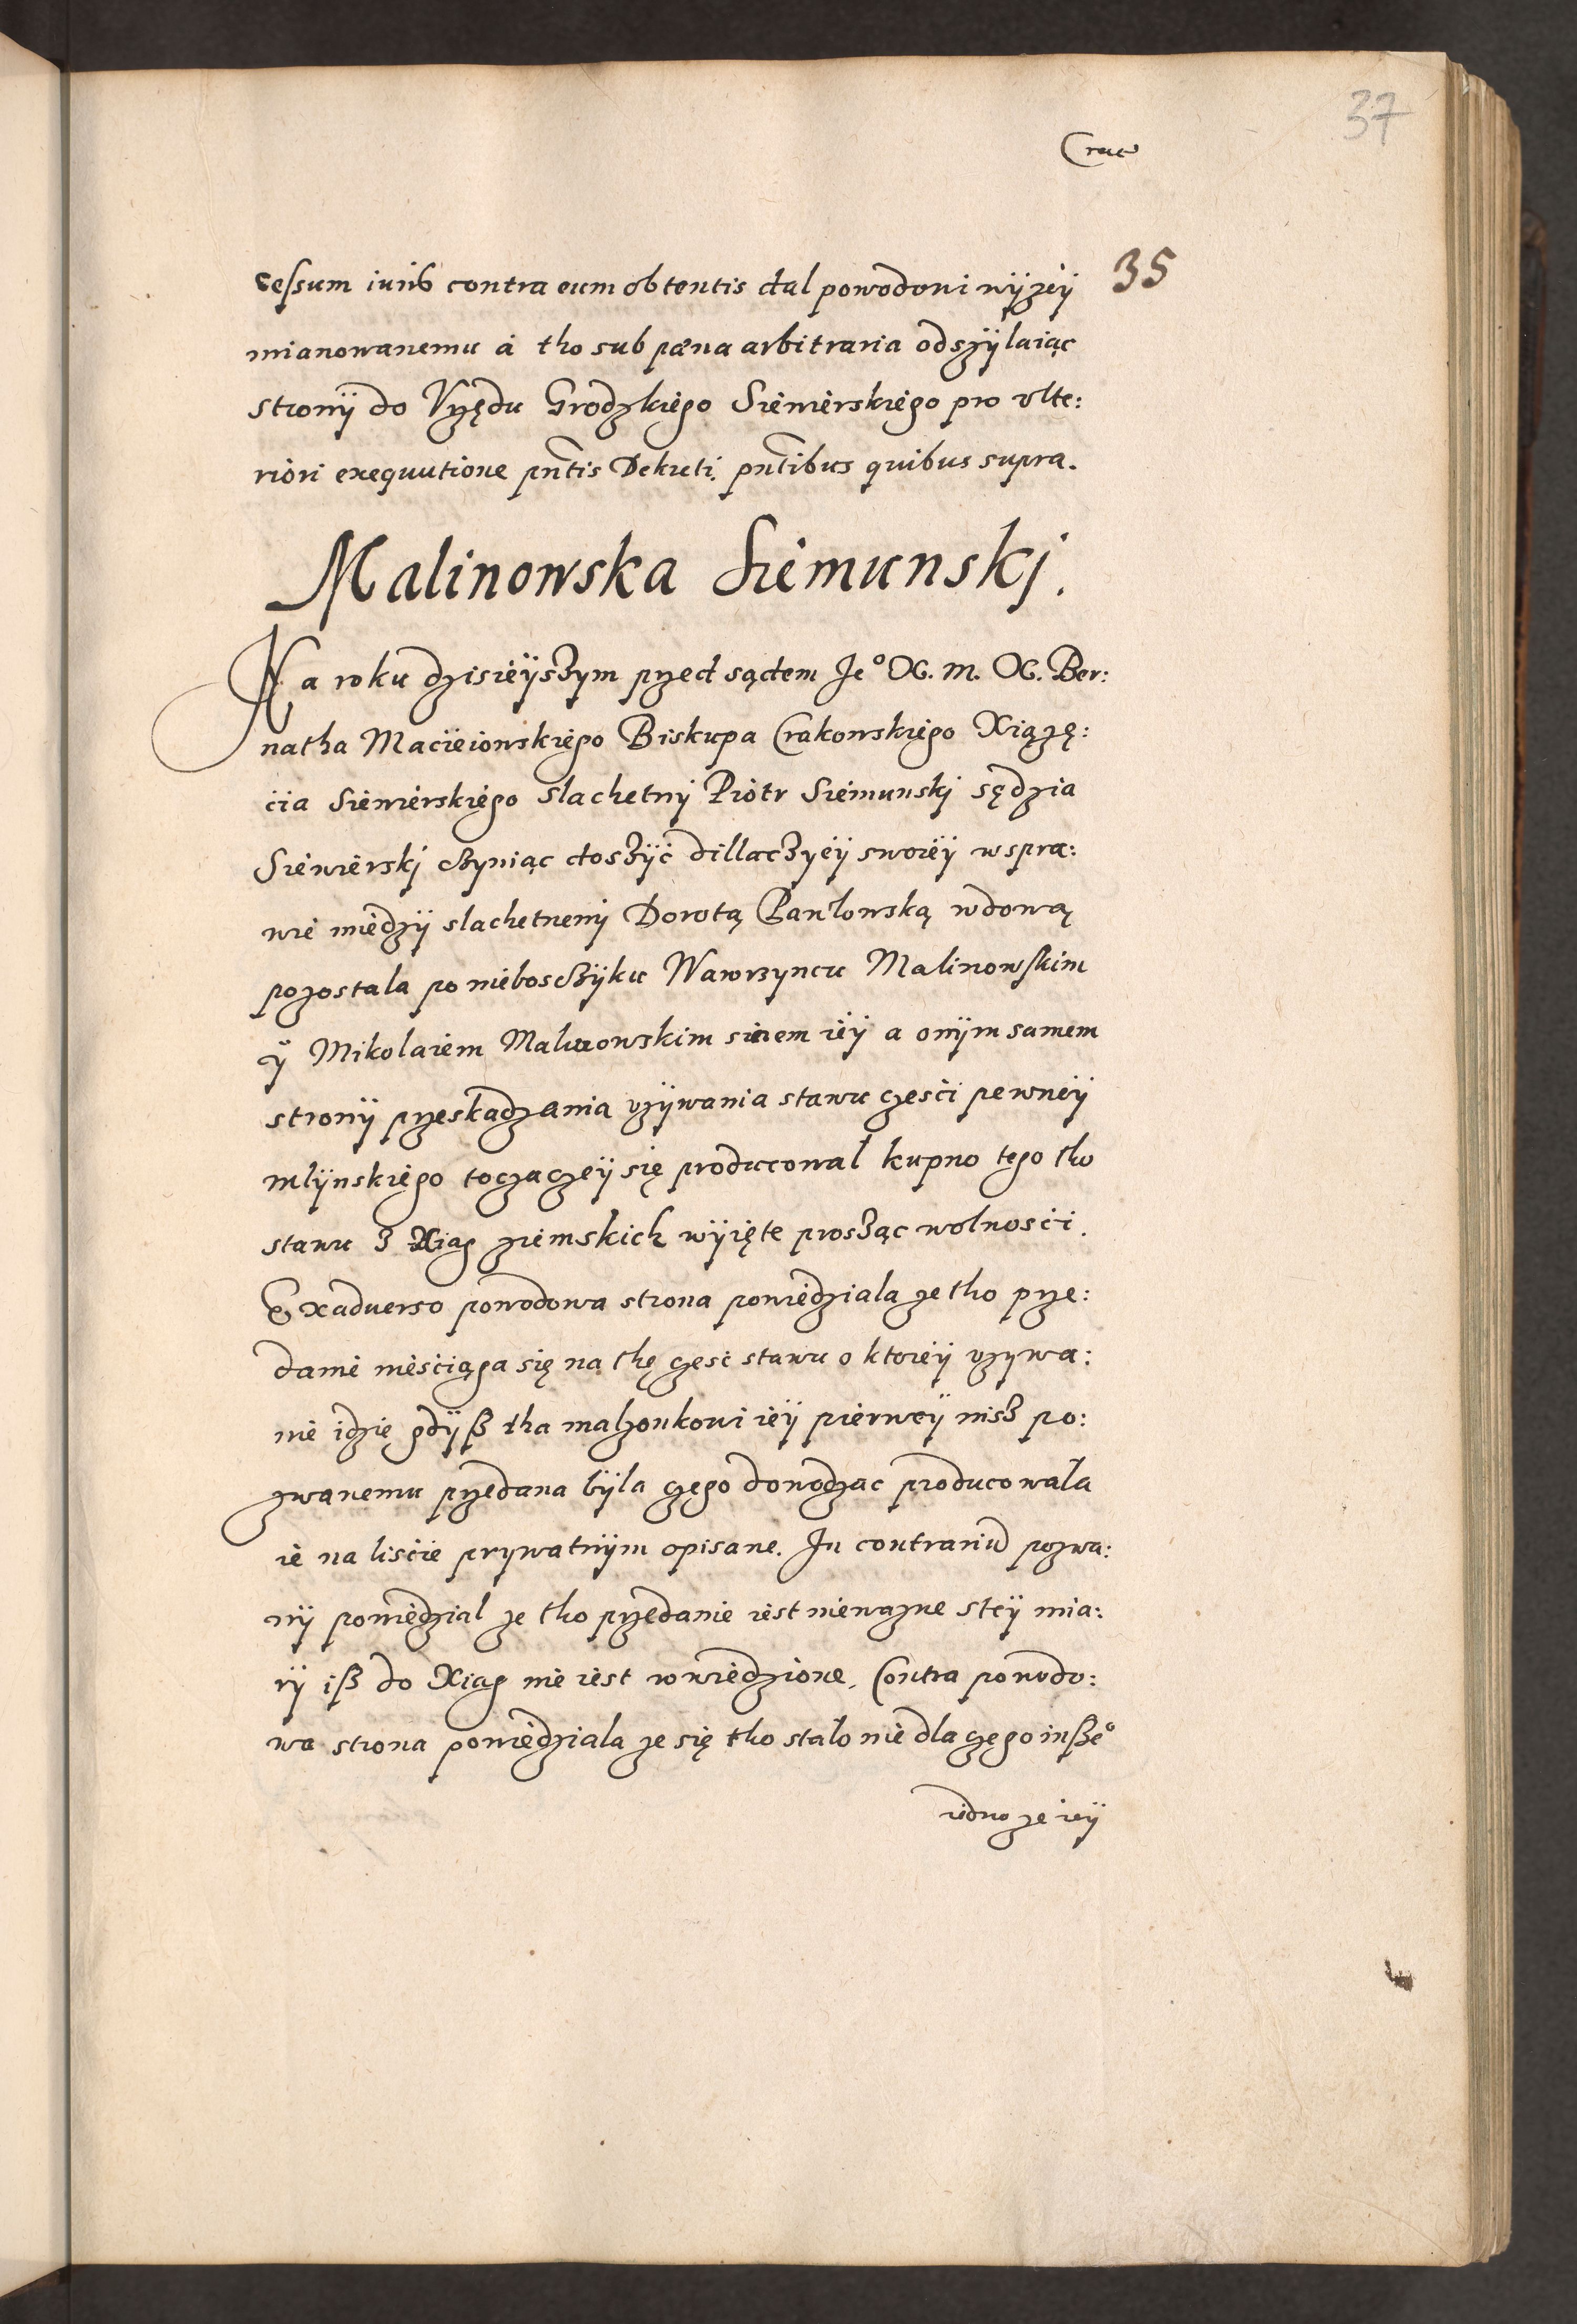 37
Crac
35
cessum iurib contra eum obtentis dal powodowi wÿżeÿ
mianowanemu á tho sub pæna arbitraria odszÿlaiąc
stronÿ do Vrzędu Grodzkiego Siewierskiego pro vlte:
riori exequutione pñtis Dekreti, pñtibus quibus supra.
Malinowska Siemunskj.
Na roku dzisieÿszym przed sądem Jeº X. M. X. Ber:
natha Macieiowskiego Biskupa Crakowskiego Xiążę:
cia Siewierskiego slachetny Piotr Siemunskj sędzia
Siewierskj czyniąc doszÿć dillaczyeÿ swoieÿ w spra:
wie miedzÿ slachetnemj Dorotą Pawlowską wdową
pozostala po nieboszczÿku Wawrzyncu Malinowskim
ÿ Mikolaiem Malinowskim sinem ieÿ a onÿm samem
stronÿ przeskadzania vzÿwania stawu czesci pewneÿ
mlÿnskiego toczączeÿ się producowal kupno tego tho
stawu z Xiag ziemskich wÿięte prosząc wolnosci.
Exaduerso powodowa strona powiedziala ze tho prze:
danie niesciąga się na thę czesc stawu o ktoreÿ vzywa:
nie idzie gdÿß tha malzonkowi ieÿ pierweÿ nisz po:
zwanemu przedana bÿla czego dowodzac producowała
ie na liscie prywatnÿm opisane. In contrariũ pozwa:
nÿ powiedzial ze tho przedanie iest niewazne steÿ mia:
rÿ iß do Xiag nie iest wowiedzione. Contra powodo:
wa strona powiedziala ze się tho stalo nie dla czego inßeº
iedno ze ieÿ